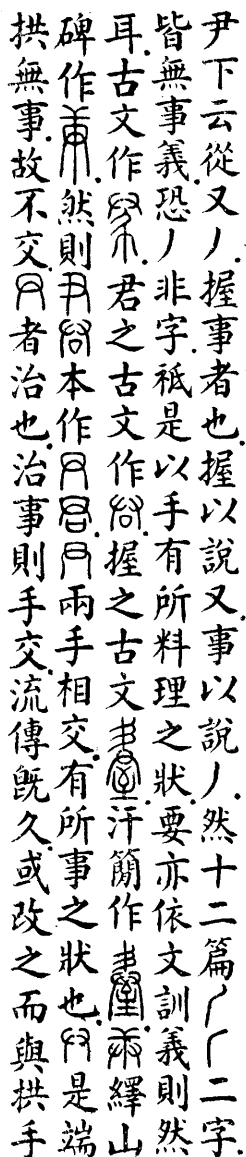 尹下云從又丿.握事者也.握以說又.事以說丿.然十二篇二字.
皆無事義.恐丿非字.祗是以手有所料理之狀.要亦依文訓義則然
耳.古文作.君之古文作.握之古文.汗簡作.繹山
碑作.然則尹本作.兩手相交.有所事之狀也.是端
拱無事.故不交.者治也.治事則手交.流傳旣久.或改之而與拱手